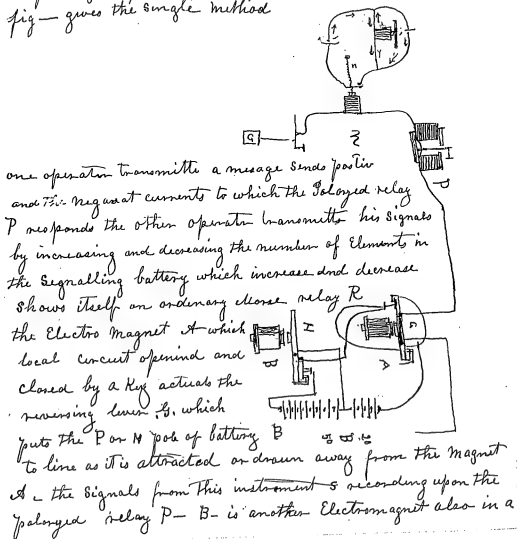 fig — gives the single method
n
Y
G
H
P
one operator transmitts a mesage sends positiv
and The negavat currents to which the Polarged relay
P responds the other operatr transmitts his signals
by increasing and decreasing the number of Elements in
the signalling battery which increase and decrease
shows itself on ordinary Morse relay R
the Electro magnet A which
local circuit openind and
closed by a Key actuats the
reversing lever G. which
puts the P or N pole of battery B
to line as it is attracted or drawn away from the magnet
A — the signals from this instrument s recording upon the
polarged relay P — B — is another Electromagnet also in a
H
B
G
A
B